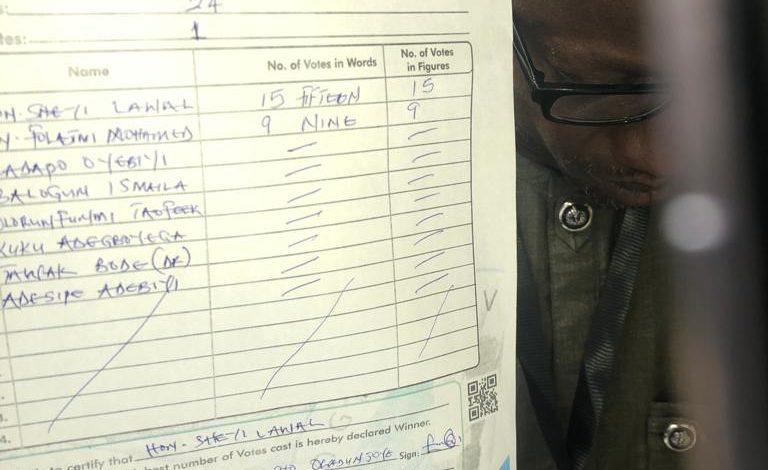 s: 24
tes: 1
Name No. of Votes in Words No. of Votes in Figures
ON. SHEYI LAWAL 15 FIFTEEN 15
N. FOLAJIMI MOHAMMED 9 NINE 9
ADAPO OYEBIYI
BALOGUN ISMAILA
OLORUNFUNMI TAOFEEK
KUKU ADEGBOYEGA
BODE (DR)
ADESIPE ADEBIYI
to certify that HON. SHEYI LAWAL
est number of Votes cast is hereby declared Winner.
Sign: